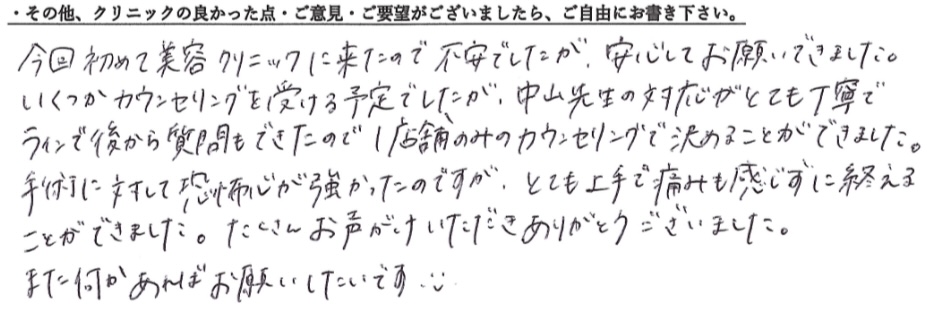 ・その他、クリニックの良かった点・ご意見・ご要望がございましたら、ご自由にお書き下さい。
今回初めて美容クリニックに来たので不安でしたが、安心してお願いできました。
いくつかカウンセリングを受ける予定でしたが、中山先生の対応がとても丁寧で
ラインで後から質問もできたので1店舗のみのカウンセリングで決めることができました。
手術に対して恐怖心が強かったのですが、とても上手で痛みも感じずに終える
ことができました。たくさんお声がけいただきありがとうございました。
また何かあればお願いしたいです